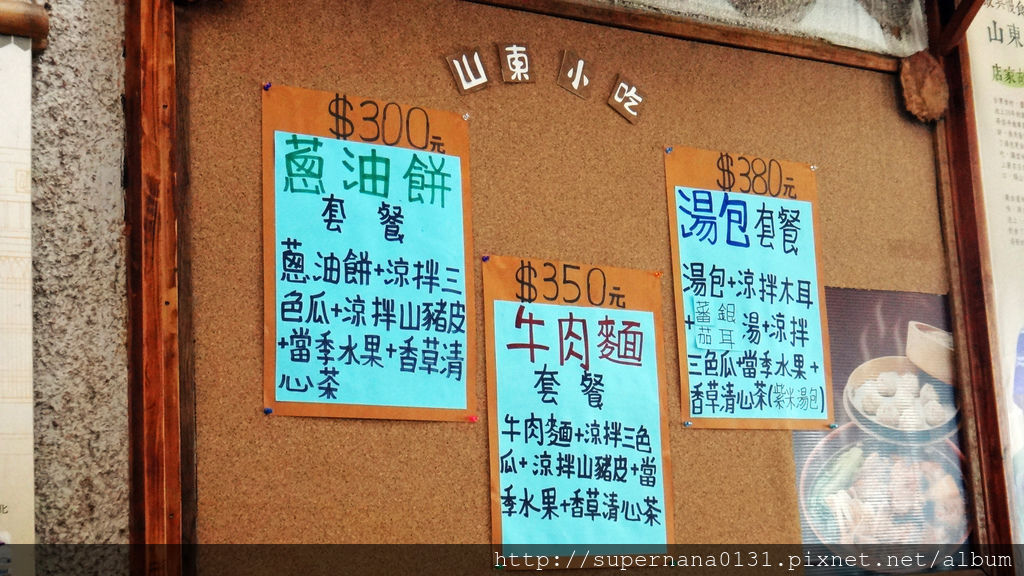 山東小吃
$300元
蔥油餅
套餐
蔥油餅+涼拌三
色瓜+涼拌山豬皮
+當季水果+香草清
心茶
$350元
牛肉麵
套餐
牛肉麵+涼拌三色
瓜+涼拌山豬皮+當
季水果+香草清心茶
$380元
湯包套餐
湯包+涼拌木耳
+蕃茄銀耳湯+涼拌
三色瓜+當季水果+
香草清心茶(紫米湯包)
山東
http://supernana0131.pixnet.net/album